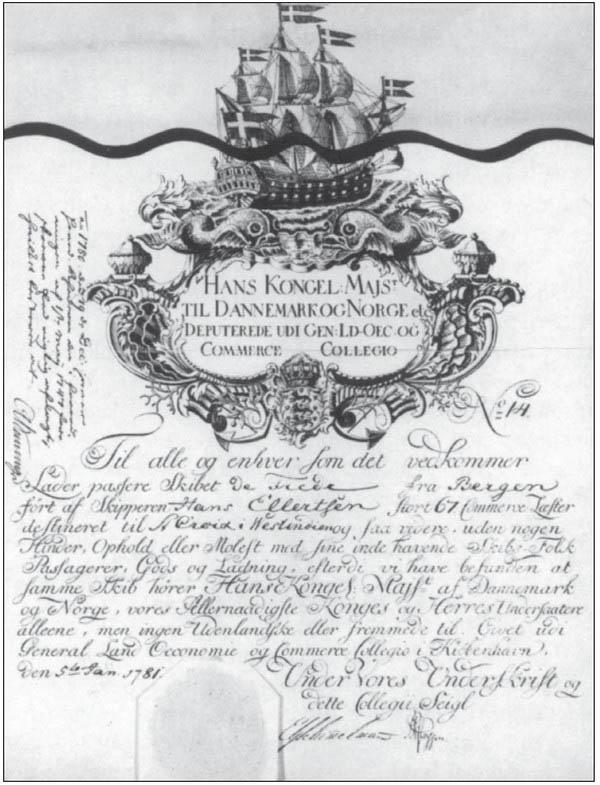 HANS KONGEL: MAJST
TIL DANNEMARK OG NORGE etc
DEPUTEREDE UDI GEN: LD-OEC-OG
COMMERCE COLLEGIO
No 14.
Til alle og enhver som det vedkommer
Lader passere Skibet De Fiede fra Bergen
ført af Skipperen Hans Ellertsen stort 67 Commerce Læster
destineret til St Croix i Westindien og saa videre, uden nogen
Hinder, Ophold eller Molest med sine inde havende Skibs-Folk
Passagerer, Gods og Ladning, efterdi vi have befunden at
samme Skib hører Hans Konges: Majst af Dannemark
og Norge, vores Allernaadigste Konges og Herres Undersaatere
alleene, men ingen Udenlandske eller fremmede til. Givet udi
General Land Oeconomie og Commerce Collegio i Kiøbenhavn,
den 5te Jan. 1781.
Under Vores Underskrift og
dette Collegii Seigl